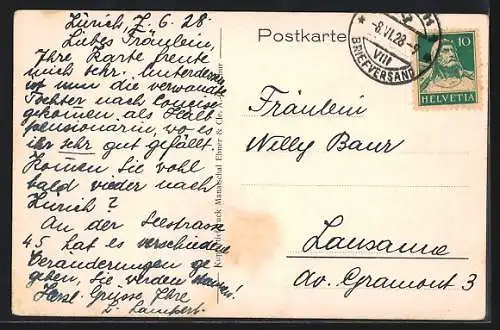 Zürich, 7. 6. 28.
Liebes Fräulein,
Ihre Karte freute
mich sehr. Unterdessen
ist nun die verwandte
Tochter nach
gekommen als Halb
pensionärin, wo es
ihr sehr gut gefällt.
Kommen Sie wohl
bald wieder nach
Zürich?
An der Seestrasse
45 hat es verschiedene
Veränderungen ge
geben, Sie werden staunen!
Herzl. Grüsse Ihre
L. Lampert.
Manatschal Ebner & Cie.
Postkarte
-8.VI.28-
VIII
BRIEFVERSAND
10
HELVETIA
Fräulein
Willy Baur
Lausanne
Av. Gramont 3